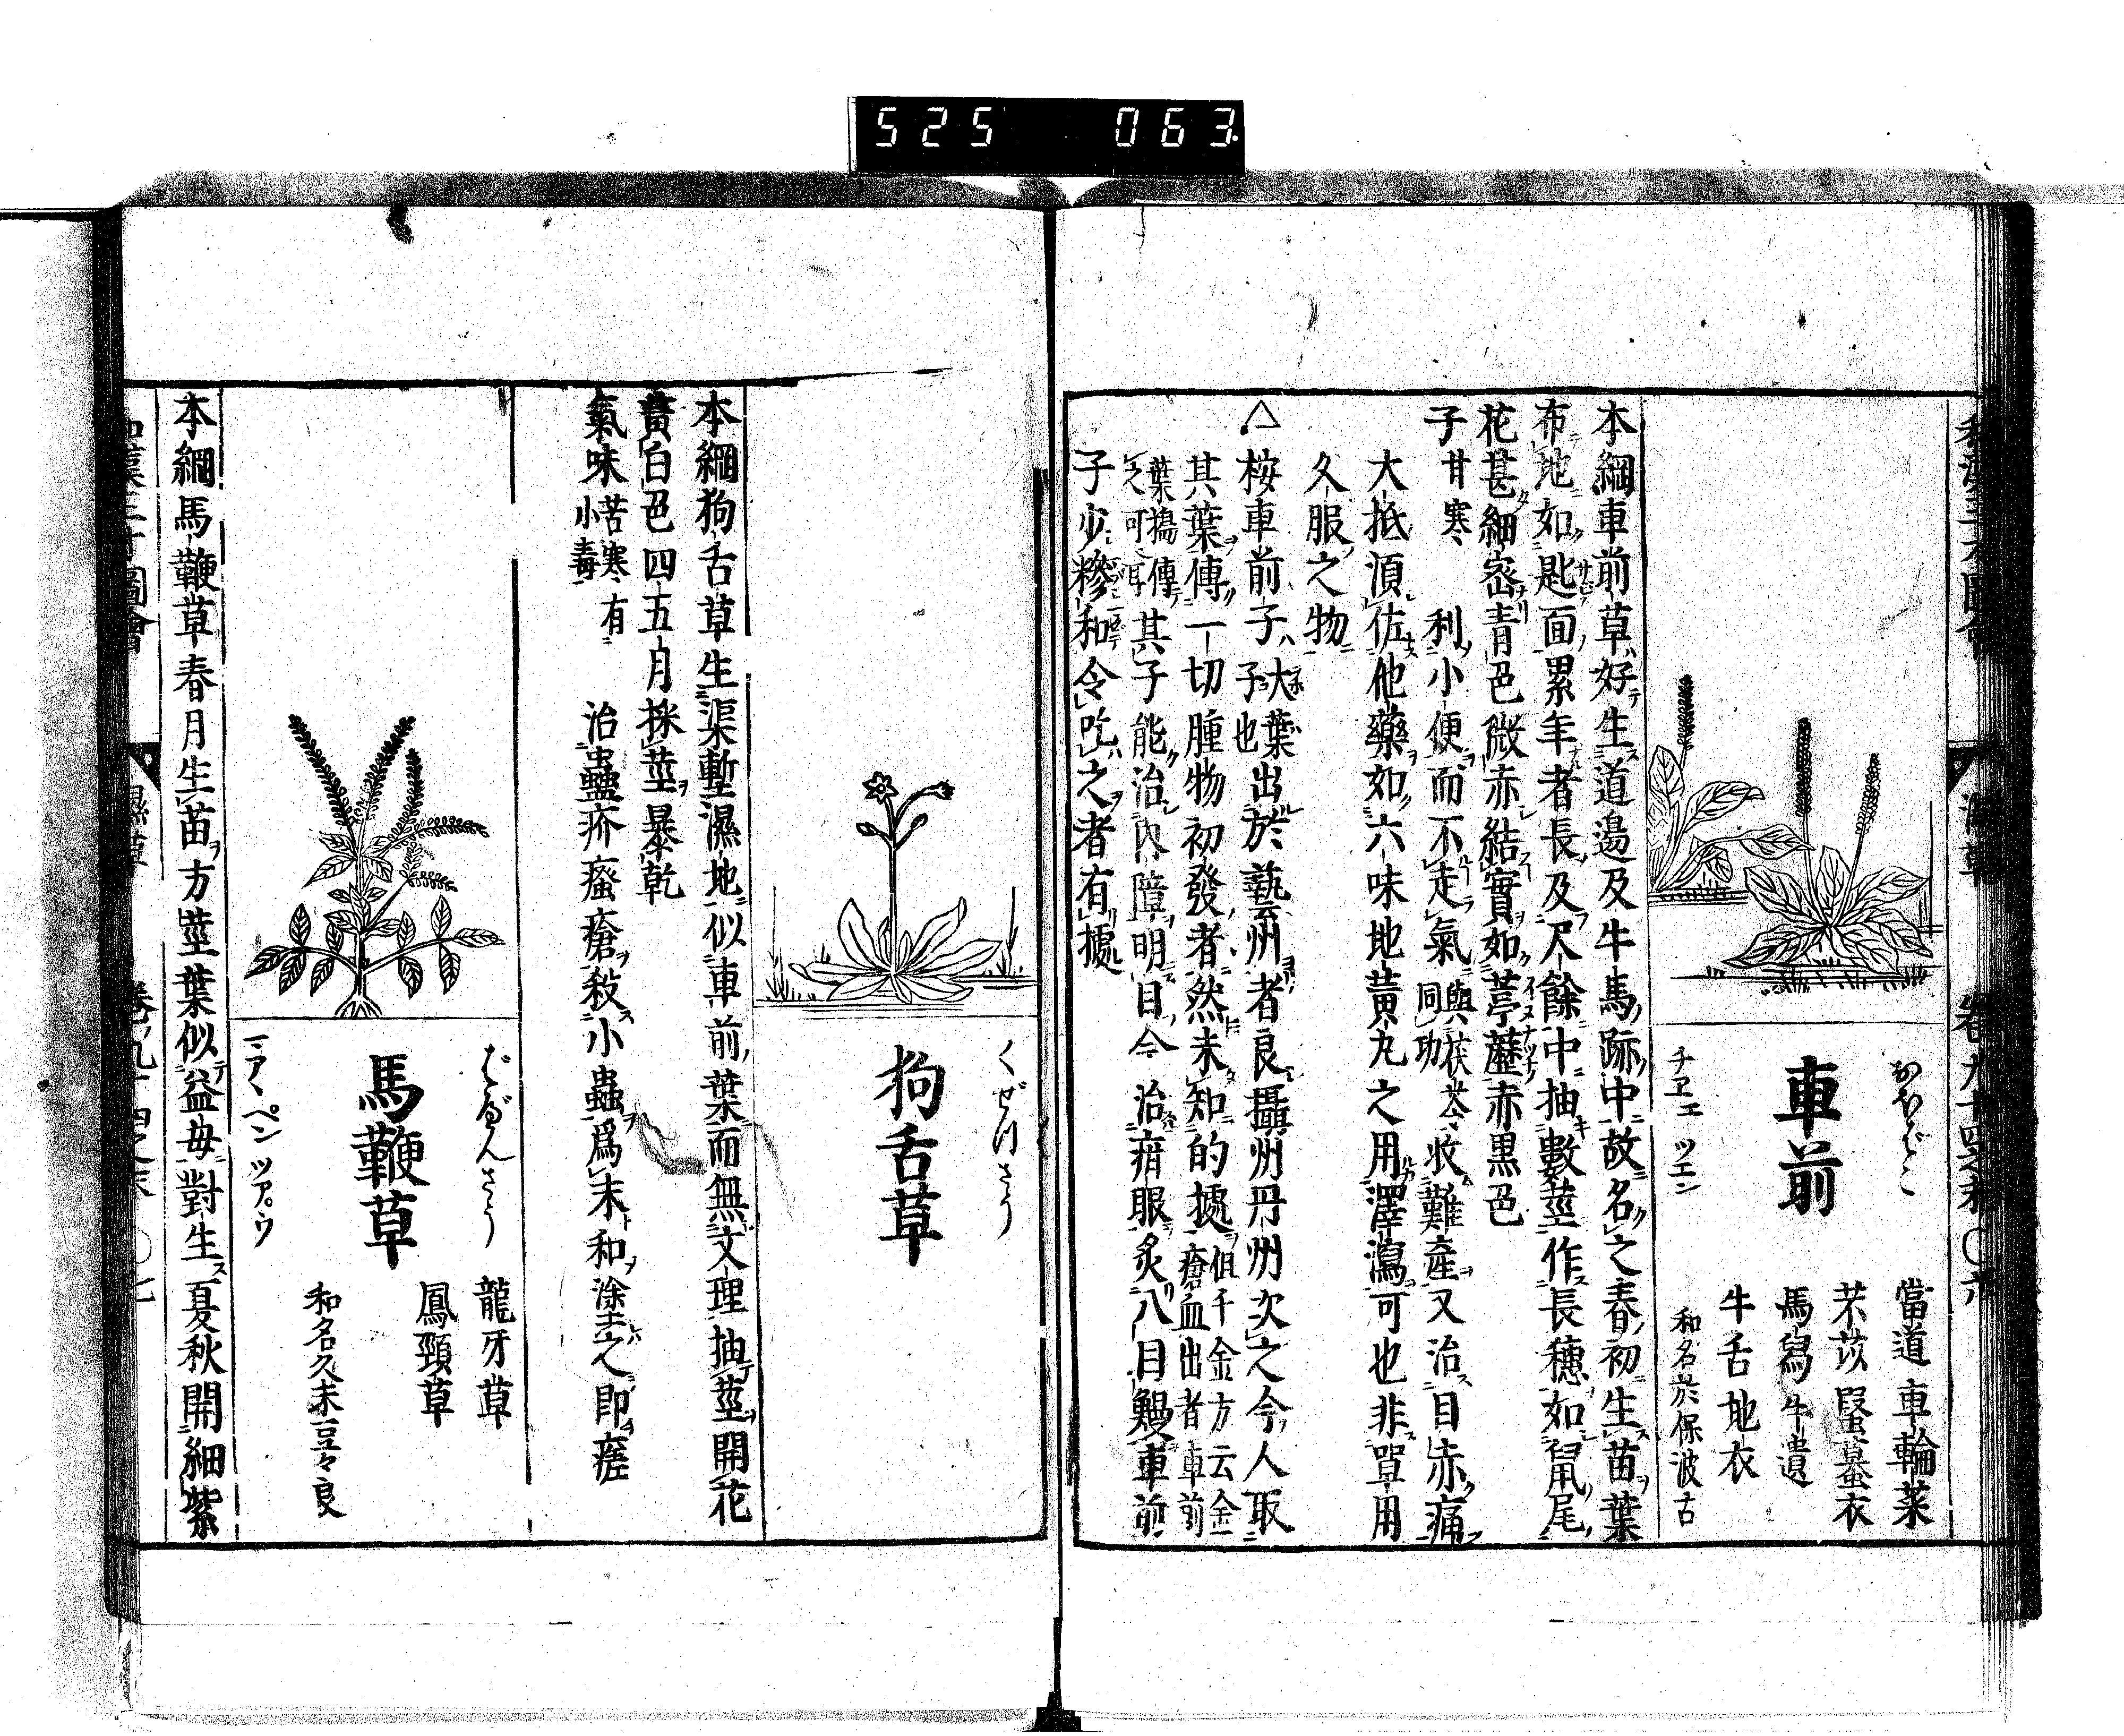 525 063
和漢三才圖會 濕草 卷九十四之末 〇六
おおばこ
車前
チヱエ ツエン
當道 車輪菜
芣苡 蝦蟇衣
馬舄 牛遺
牛舌 地衣
和名於保波古
本綱車前草好生道邉及牛馬跡中故名之春初生苗葉
布地如匙面累年者長及尺餘中抽數莖作長穗如鼠尾
花甚細密青色微赤結實如葶藶赤黒色
子 甘寒 利小便而不走氣 與茯苓同功 收難產又治目赤痛
大抵須佐他藥如六味地黄丸之用澤瀉可也非單用
久服之物
△按車前子 大葉子也 出於藝州者良攝州丹州次之今人取
其葉傅一切腫物初發者然未知的據 但千金方云金瘡血出者車前
葉搗傅之可 其子能治內障明目今治疳服炙八目鰻車前
子少糝和令吃之者有據
くぜつさう
狗舌草
本綱狗舌草生渠塹濕地似車前葉而無文理抽莖開花
黄白色四五月採莖暴乾
氣味 苦寒有小毒 治蠱疥瘙瘡殺小蟲爲末和塗之即瘥
ばべんさう
馬鞭草
龍牙草
鳳頸草
和名久末豆々良
本綱馬鞭草春月生苗方莖葉似益母對生夏秋開細紫
和漢三才圖會 濕草 卷九十四之末 〇七